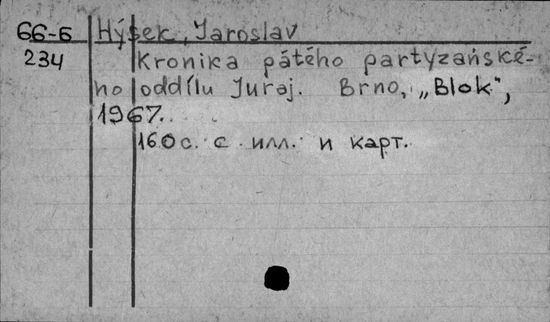 66-6 Hýsek, Jaroslav
234 Kronika pátého partyzańské-
ho oddílu Juraj. Brno, „Blok“,
1967.
160 с. с илл. и карт.